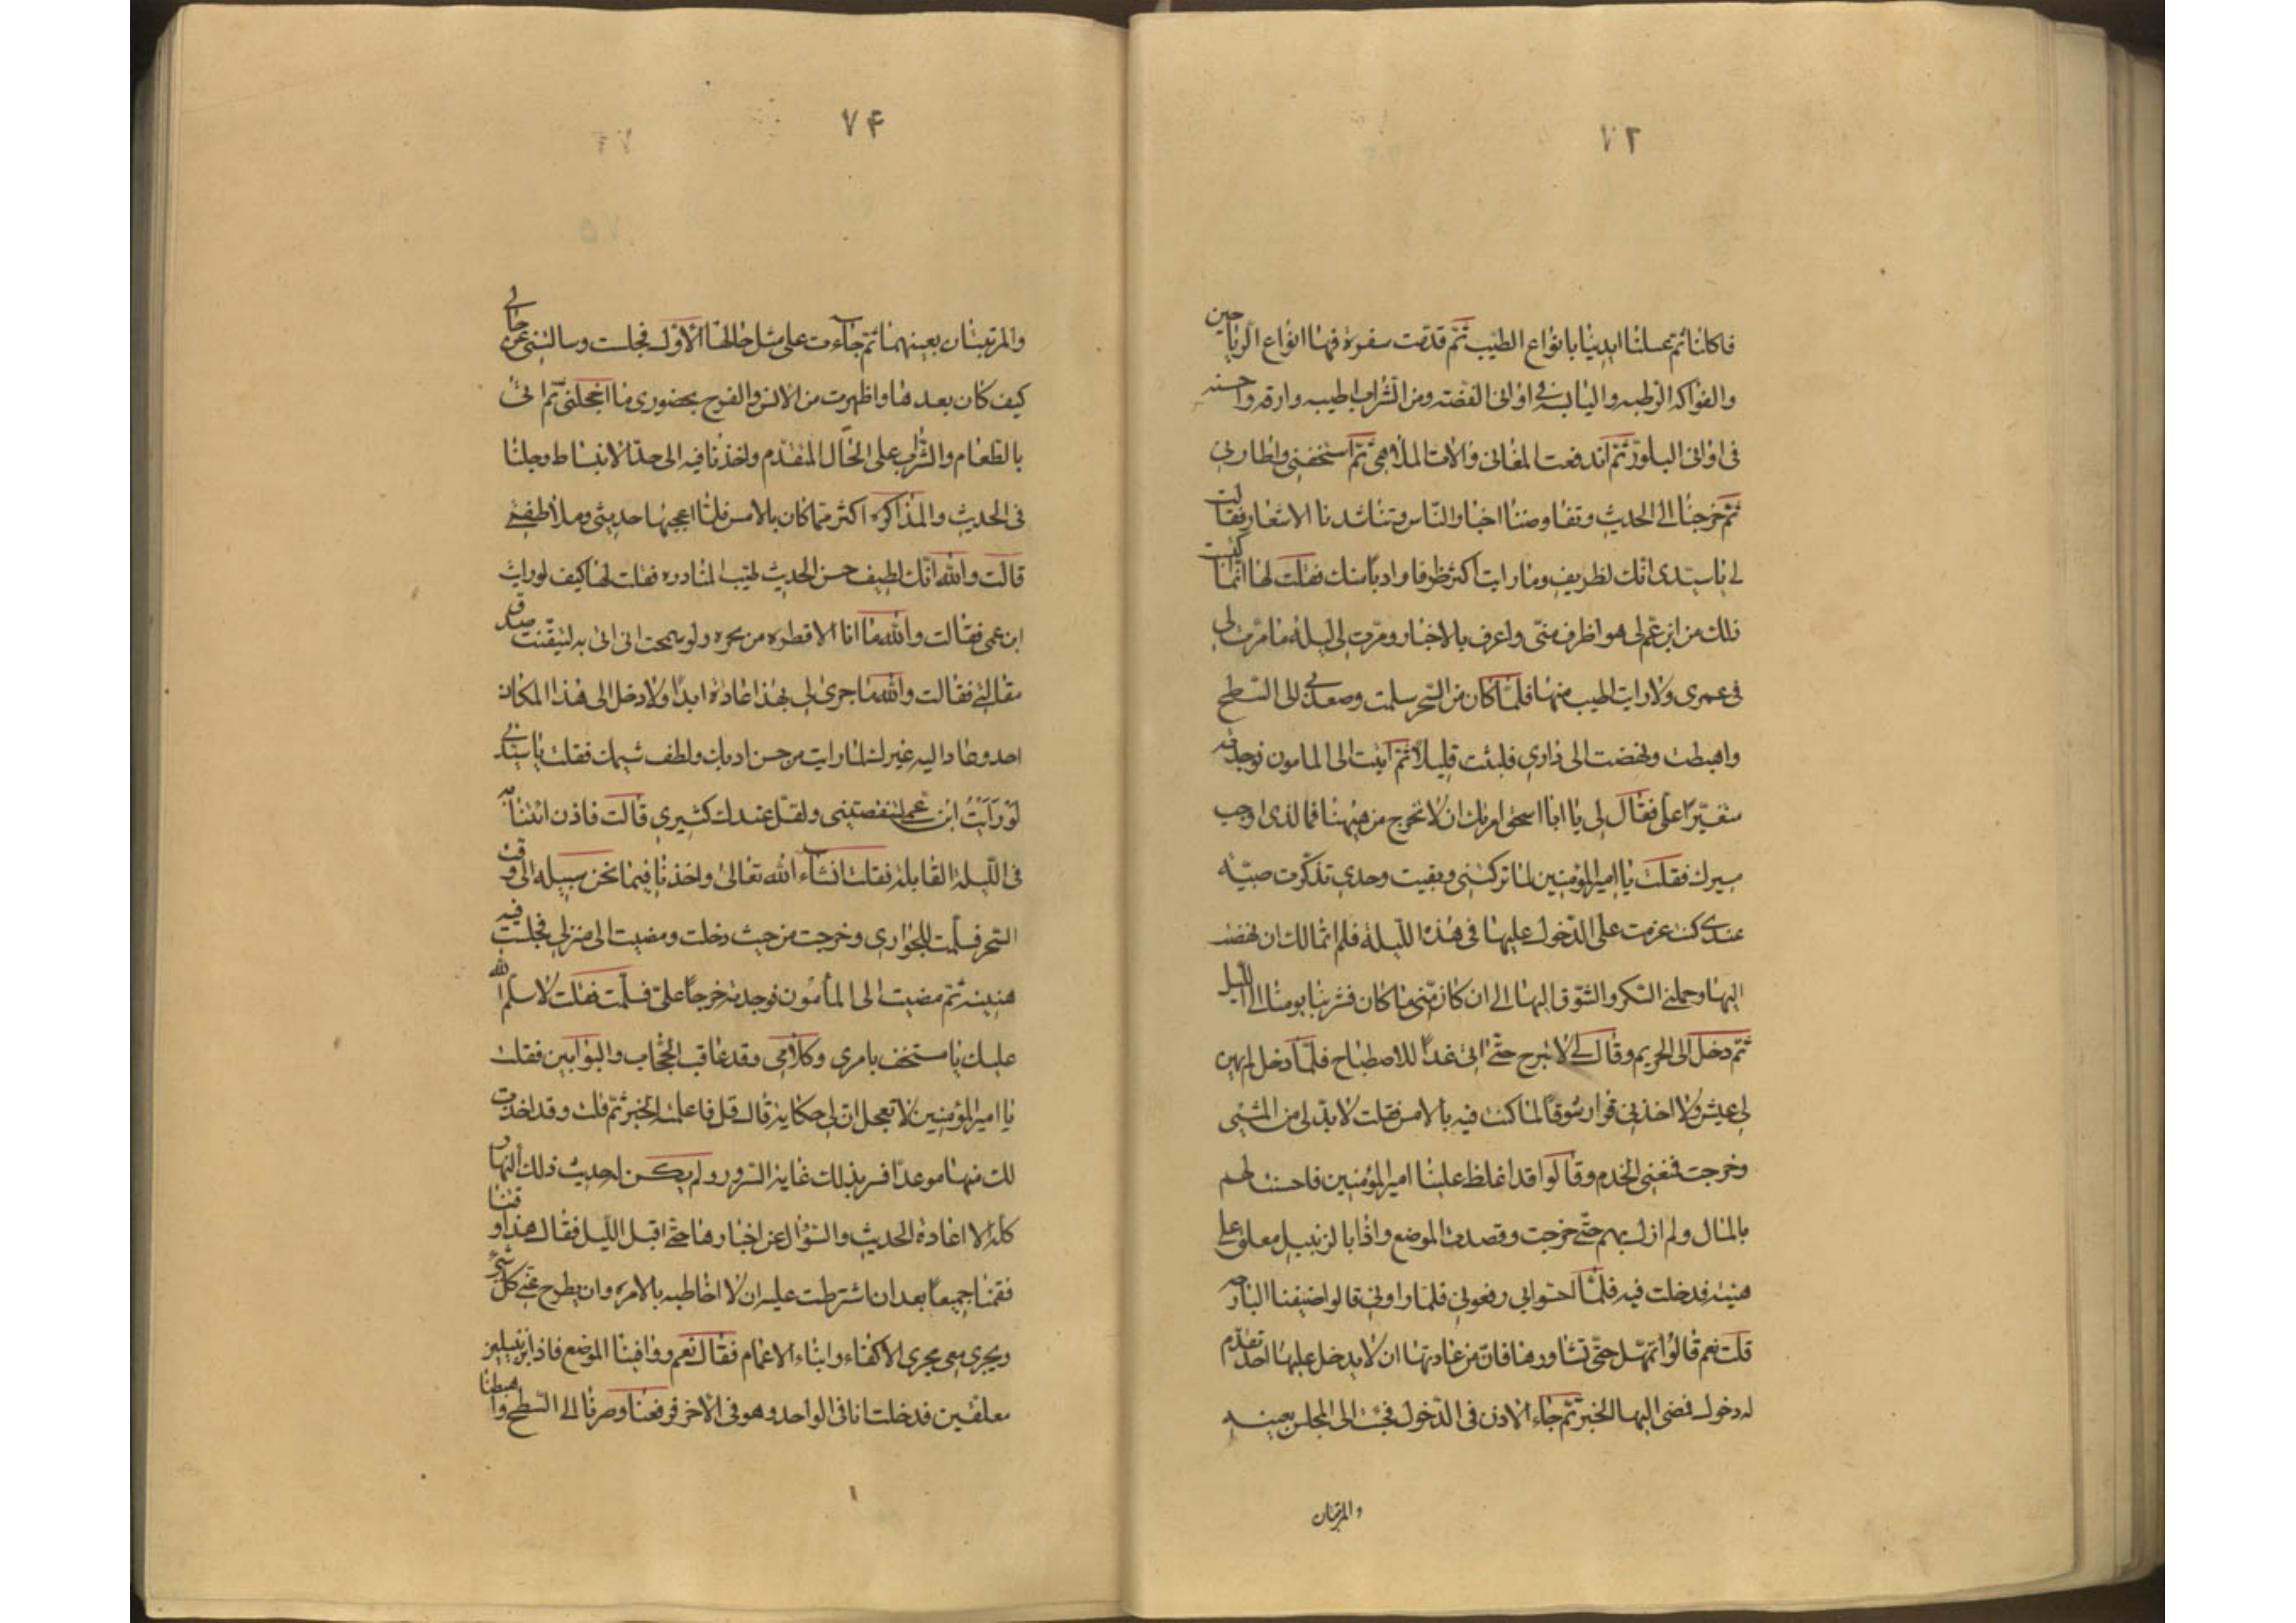 ٧٢
فاكلنا ثم غسلنا ايدينا بانواع الطيب ثم قدمت سفرة فيها انواع الرياحين
والفواكه الرطبه واليابسة في اواني الفضته ومن الشراب اطيبه وارقه واحسنه
في اواني البلور ثم اندفعت المغاني والات الملاهي ثم استخفني واطاربي
ثم خرجنا الى الحديث وتفاوضنا اخبار الناس وتناشدنا الاشعار فقالت
لي يا سيدي انك لظريف وما رايت اكثر ظرفا وادبا منك فقلت لها انما كنت
ذلك من ابن عم لي هو اظرف مني واعرف بالاخبار ومرت لي ليلة ما مرت لي
في عمري ولا رايت اطيب منها فلما كان من السحر سلمت وصعد بي الى السطح
واهبطت ونهضت الى داري فلبثت قليلا ثم اتيت الى المامون فوجدته
متغيرا على فقال لي يا ابا اسحق امرتك ان لا تخرج من هيهنا فما الذي اوجب
مسيرك فقلت يا امير المؤمنين لما تركتني وبقيت وحدي تذكرت صبيه
عندي كنت عزمت على الدخول عليها في هذه الليلة فلم اتمالك ان نهضت
اليها وحملني السكر والشوق اليها الى ان كان مني ما كان فشربنا يومنا الى الليل
ثم دخل الى الحريم وقال لي لا تبرح حتى اتي غدا للاصطباح فلما دخل لم يهن
لي عيش ولا اخذني قرار شوقا لما كنت فيه بالامس فقلت لا بد لي من المشي
وخرجت فمنعني الخدم وقالوا قد اغلظ علينا امير المؤمنين فاحسنت لهم
بالمال ولم ازل بهم حتى خرجت وقصدت الموضع واذا بالزنبيل معلق على
هنيئه فدخلت فيه فلما احسوا بي رفعوني فلما راوني قالوا ضيفنا البارحه
قلت نعم قالوا تمهل حتى نشاورها فان من عادتها ان لا يدخل عليها احد تقدم
له دخول فمضى اليها الخبر ثم جاء الاذن في الدخول فجئت الى المجلس بعينه
والمرتبتان
٧۴
والمرتبتان بعينهما ثم جاءت على مثل حالها الاول فجلست وسالتني عن حالي
كيف كان بعدها واظهرت من الانس والفرح بحضوري ما اخجلني ثم اتي
بالطعام والشراب على الحال المتقدم واخذنا فيه الى حد الانبساط وجلنا
في الحديث والمذاكره اكثر مما كان بالامس فلما اعجبها حديثي وملاطفتي
قالت والله انك لطيف حسن الحديث طيب المنادره فقلت لها كيف لو رايت
ابن عمي فقالت والله ما انا الا قطره من بحره ولو سمحت اني اتي به لتيقنت صدق
مقالتي فقالت والله ما جرى لي بهذا عادة ابدا ولا دخل الى هذا المكان
احد وعاد اليه غيرك لما رايت من حسن ادبك ولطف شيمك فقلت يا سيدتي
لو رايت ابن عمي لتنقصيني ولقل عندك كثيري قالت فاذن ائتنا به
في الليلة القابلة فقلت انشاء الله تعالى واخذنا فيما نحن سبيله الى وقت
السحر فسلمت للجواري وخرجت من حيث دخلت ومضيت الى منزلي فجلست فيه
هنيئه ثم مضيت الى المأمون فوجدته خرجا علي فسلمت فقلت لا سلم الله
عليك يا مستخف بامري وكلامي وقد عاقب الحجاب والبوابين فقلت
يا امير المؤمنين لا تعجل ان لي حكاية قال قل فاعلمته الخبر ثم قلت وقد اخذت
لك منها موعدا فسر بذلك غاية السرور ولم يكن له حديث ذلك النهار
كله الا اعادة الحديث والسؤال عن اخبارها حتى اقبل الليل فقال هذا وقتنا
فقمنا جميعا بعد ان اشترطت عليه ان لا اخاطبه بالامره وان يطرح عني كل شيء
ويجري معي مجرى الاكفاء وابناء الاعمام فقال نعم ووافينا الموضع فاذا بزنبيلين
معلقين فدخلت انا في الواحد وهو في الاخر فرفعنا وصرنا الى السطح واهبطنا